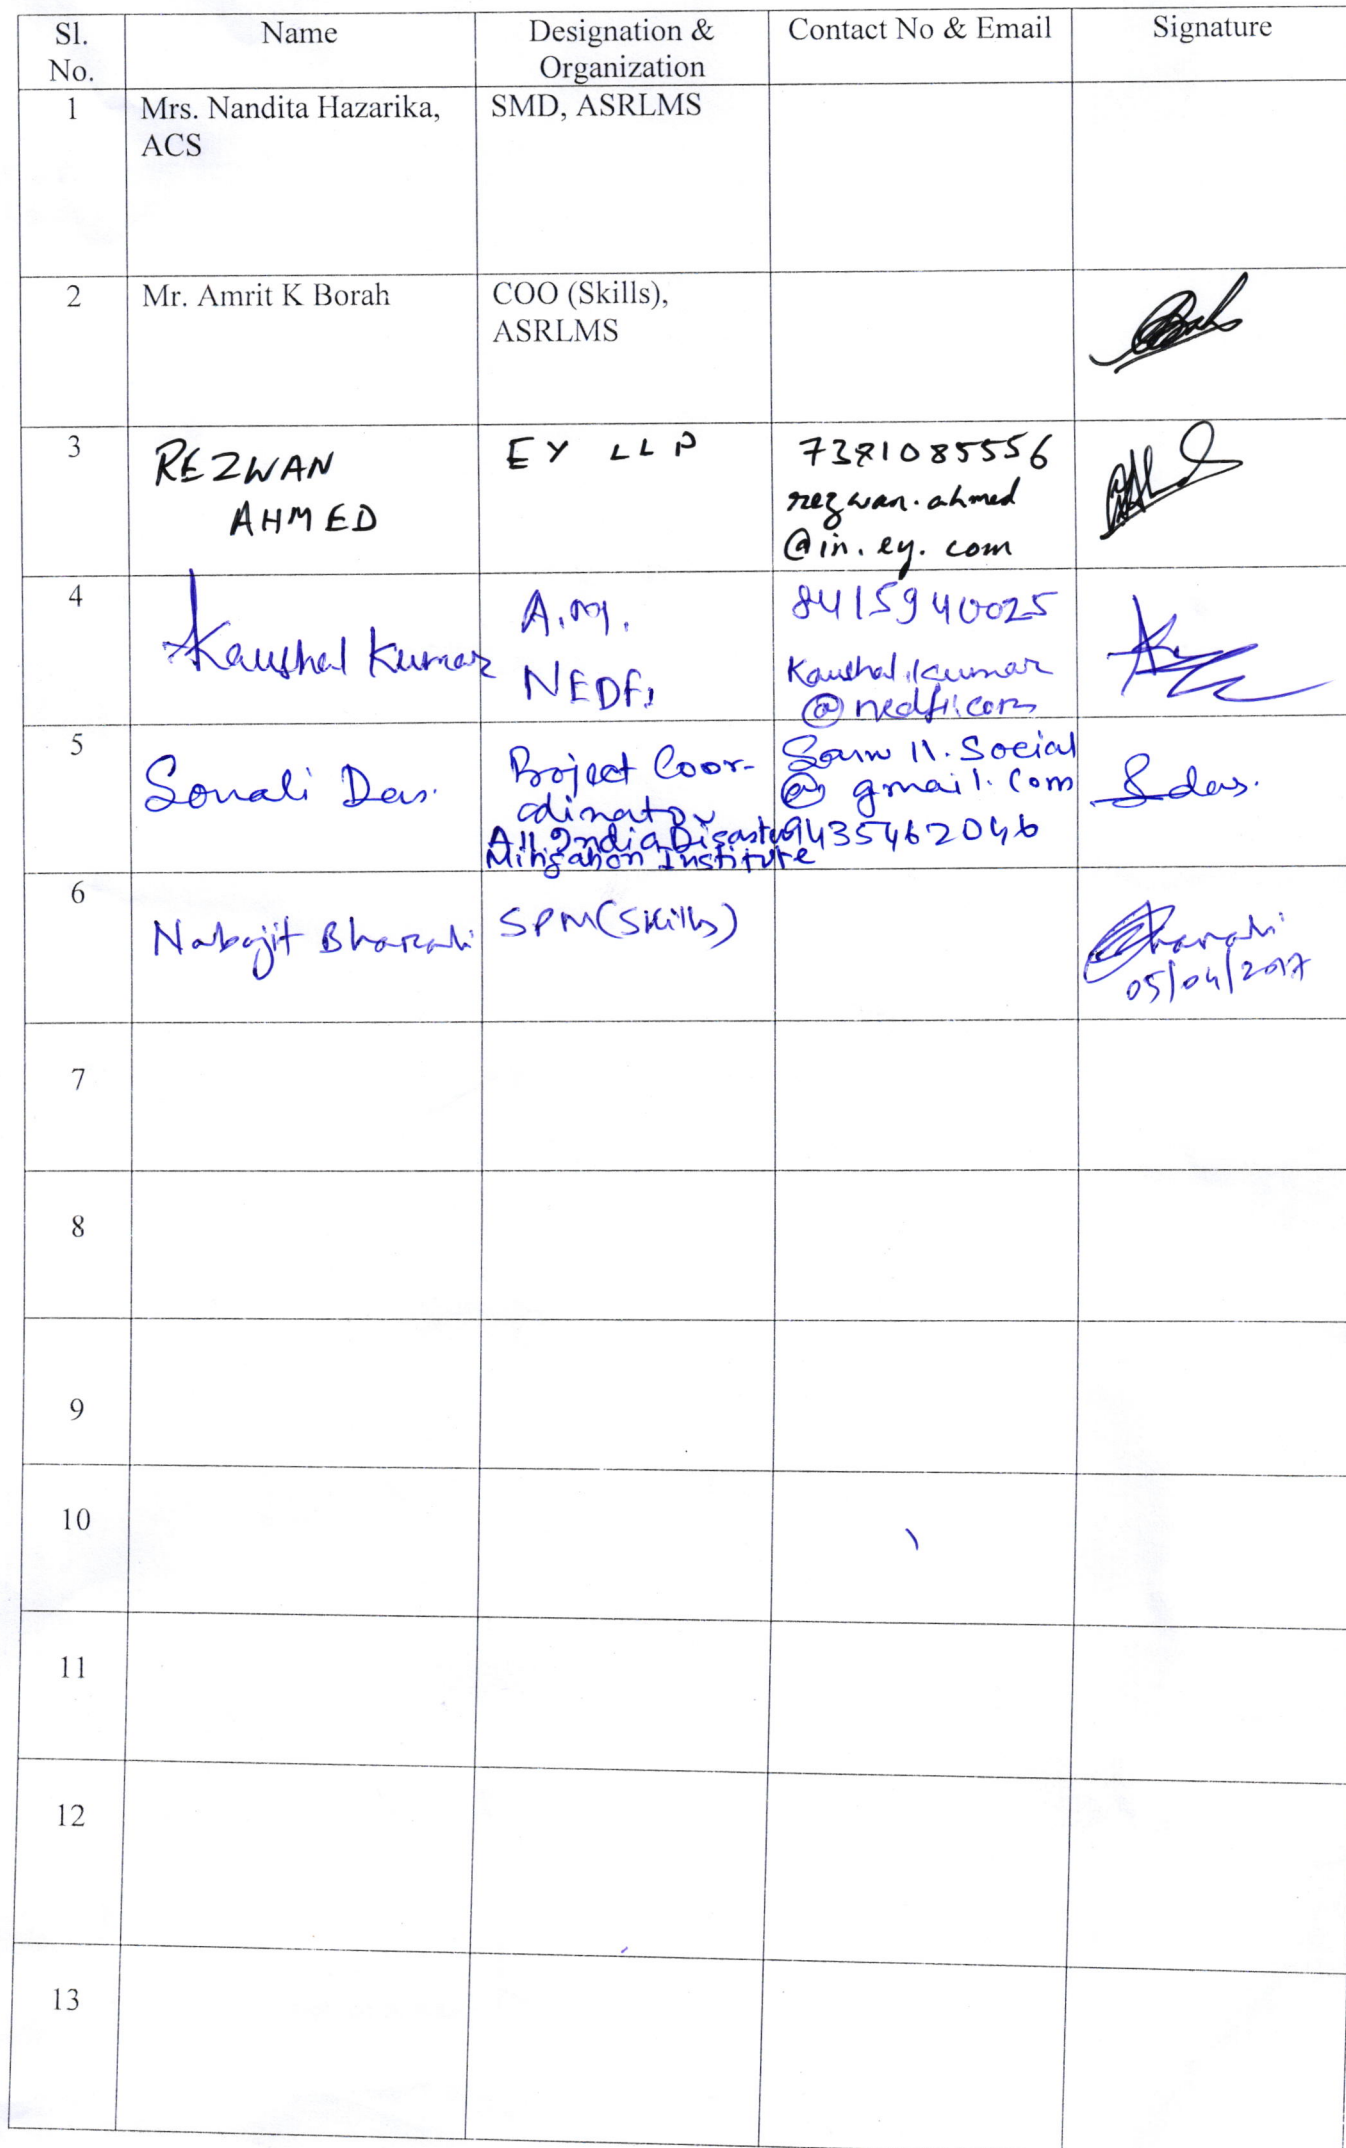 Sl. No.
Name
Designation & Organization
Contact No & Email
Signature
1
Mrs. Nandita Hazarika,
ACS
SMD, ASRLMS
2
Mr. Amrit K Borah
COO (Skills),
ASRLMS
3
REZWAN
AHMED
EY LLP
7381085556
rezwan.ahmed
@in.ey.com
4
Kaushal Kumar
A.M.
NEDFi
8415940025
Kaushal.kumar
@nedfi.com
5
Sonali Das.
Project Coor-
dinator
All India Disaster
Mitigation Institute
11.Social
@gmail.com
9435462046
Sdas.
6
Nabajit Bharali
SPM(Skills)
Bharali
05/04/2017
7
8
9
10
11
12
13